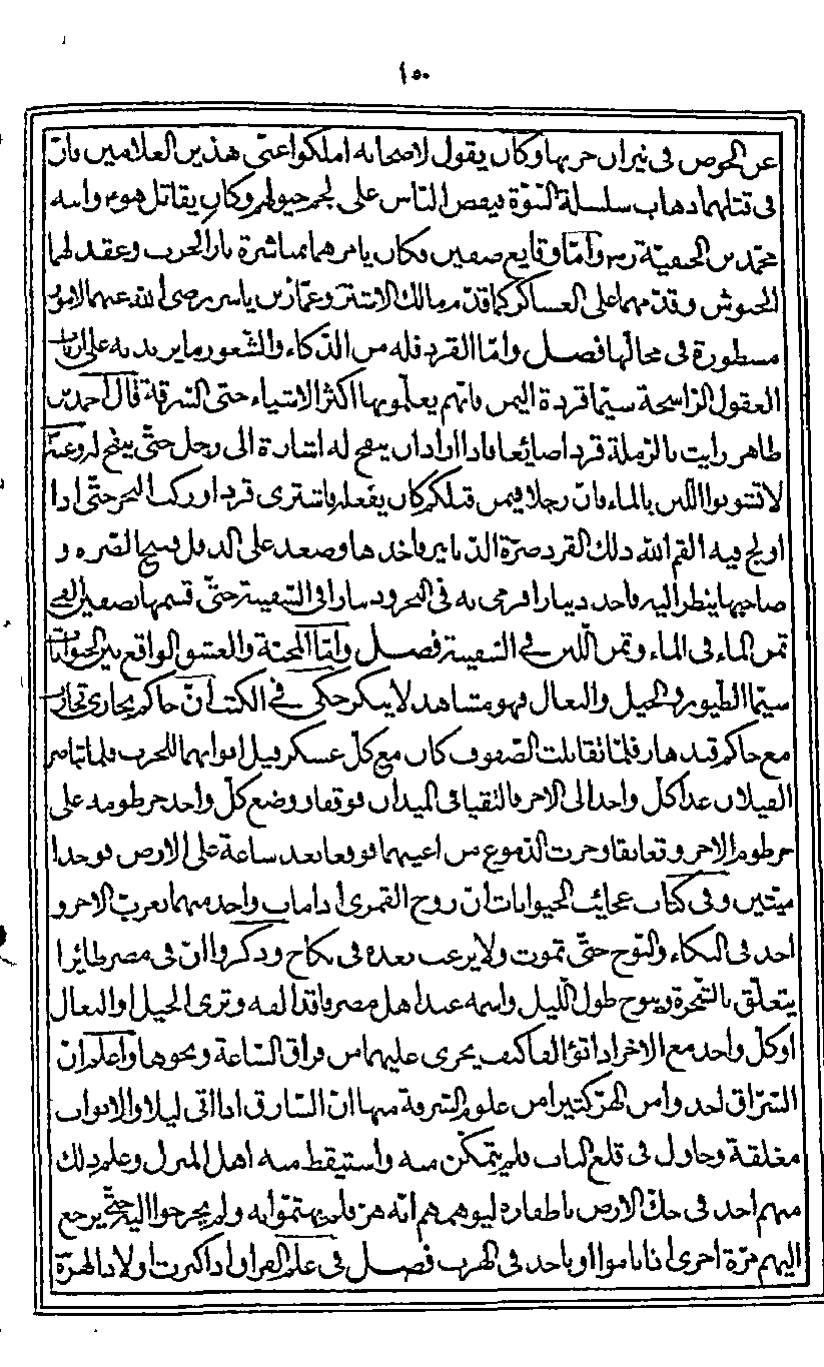 ١٥٠
عن الخوض فى نيران حربها وكان يقول لاصحابه املكوا عنّى هذين الغلامين فانّ
فى قتلهما ذهاب سلسلة النبوّة فيقبض النّاس على لجم خيولهم وكان يقاتل هو وابنه
محمّد بن الحنفيّة رض وامّا وقايع صفين فكان يامرهما بمباشرة نار الحرب وعقد لهما
الجيوش وقدّمهما على العساكر كما قدّم مالك الاشتر وعمّار بن ياسر رضى الله عنهما والامور
مسطورة فى محالّها فصل وامّا القرد فله من الذّكاء والشّعور ما يزيد به على ارباب
العقول الرّاسخة سيّما قردة اليمن فانّهم يعلّمونها اكثر الاشياء حتى السّرقة قال احمد بن
طاهر رايت بالرّملة قردا صائغا فاذا اراد ان ينفخ له اشارة الى رجل حتّى ينفخ له وعنه
لا تشوبوا اللبن بالماء فانّ رجلا فيمن قبلكم كان يفعله فاشترى قردا وركب البحر حتّى اذا
اولج فيه القم الله ذلك القرد صرّة الدّنانير فاخذها وصعد على الدقل وفتح الصّره و
صاحبها ينظر اليه فاخذ دينارا فرمى به فى البحر ودينارا فى السّفينة حتّى قسمها نصفين فالقى
ثمن الماء فى الماء وثمن اللّبن فى السّفينة فصل وامّا المحبّة والعشق الواقع بين الحيوانات
سيّما الطّيور والخيل والبغال فهو مشاهد لا ينكر حكى فى الكتب انّ حاكم بخارى تحارب
مع حاكم قندهار فلمّا تقابلت الصّفوف كان مع كلّ عسكر فيل اتوا بهما للحرب فلمّا تباصر
الفيلان عدا كلّ واحد الى الاخر فالتقيا فى الميدان فوقفا ووضع كلّ واحد خرطومه على
خرطوم الاخر وتعانقا وجرت الدّموع من اعينهما فوقعا بعد ساعة على الارض فوجدا
ميّتين وفى كتاب عجائب الحيوانات ان زوج القمرى اذا مات واحد منهما تعزّب الاخر و
اخذ فى البكاء والنّوح حتّى تموت ولا يرغب بعده فى نكاح وذكروا انّ فى مصر طائرا
يتعلّق بالشّجرة وينوح طول اللّيل واسمه عند اهل مصر فاقد الفه وترى الخيل او البغال
او كلّ واحد مع الاخر اذا تؤالفا كيف يجرى عليهما من فراق السّاعة ونحوها واعلم ان
السّراق اخذوا من الهرّ كثيرا من علوم السّرقة منها انّ السّارق اذا اتى ليلا والابواب
مغلقة وحاول فى قلع الباب فلم يتمكّن منه واستيقظ منه اهل المنزل وعلم ذلك
منهم اخذ فى حكّ الارض باظفاره ليوهمهم انّه هرّ فلم يهتمّوا به ولم يخرجوا اليه حتّى يرجع
اليهم مرّة اخرى اذا ناموا او ياخذ فى الهرب فصل فى علم الفرار اذا كبرت اولاد الهرّة